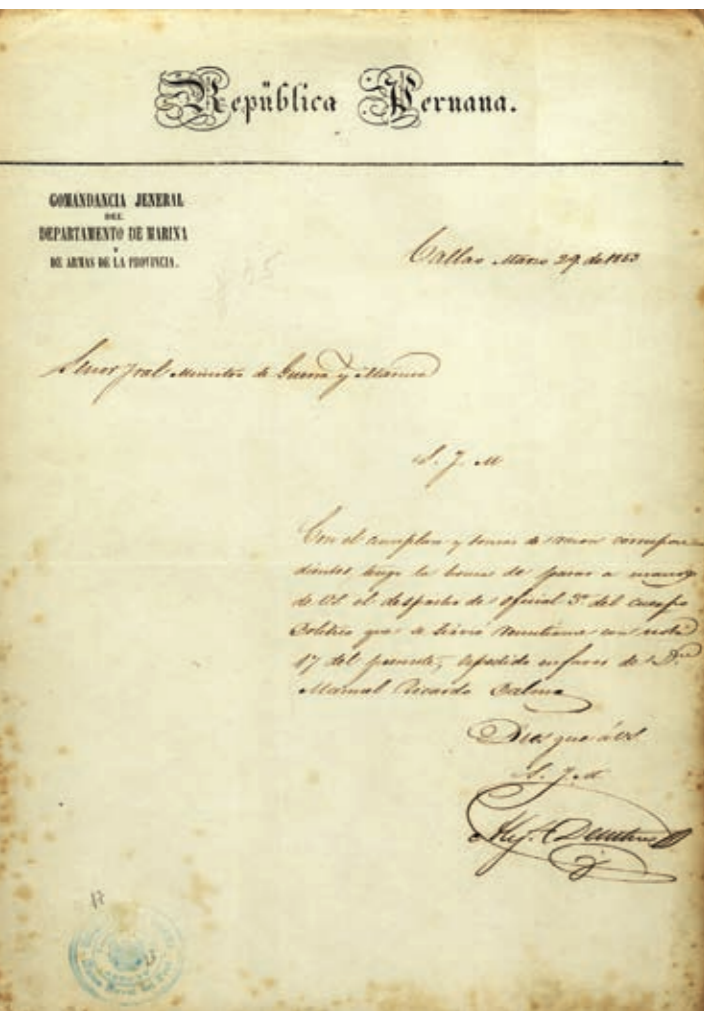 República Peruana.
COMANDANCIA JENERAL
DEL
DEPARTAMENTO DE MARINA
Y
DE ARMAS DE LA PROVINCIA.
Callao Marzo 29 de 1853
Señor Jral Ministro de Guerra y Marina
S. J. M.
Con el cumplase y tomas de razon correspon
dientes tengo la honra de pasar a manos
de US el despacho de oficial 3º del cuerpo
Politico que se sirvió remitirme con nota
17 del presente, espedido en favor de Dn
Manuel Ricardo Palma
Dios gue á US.
S. J. M.
17